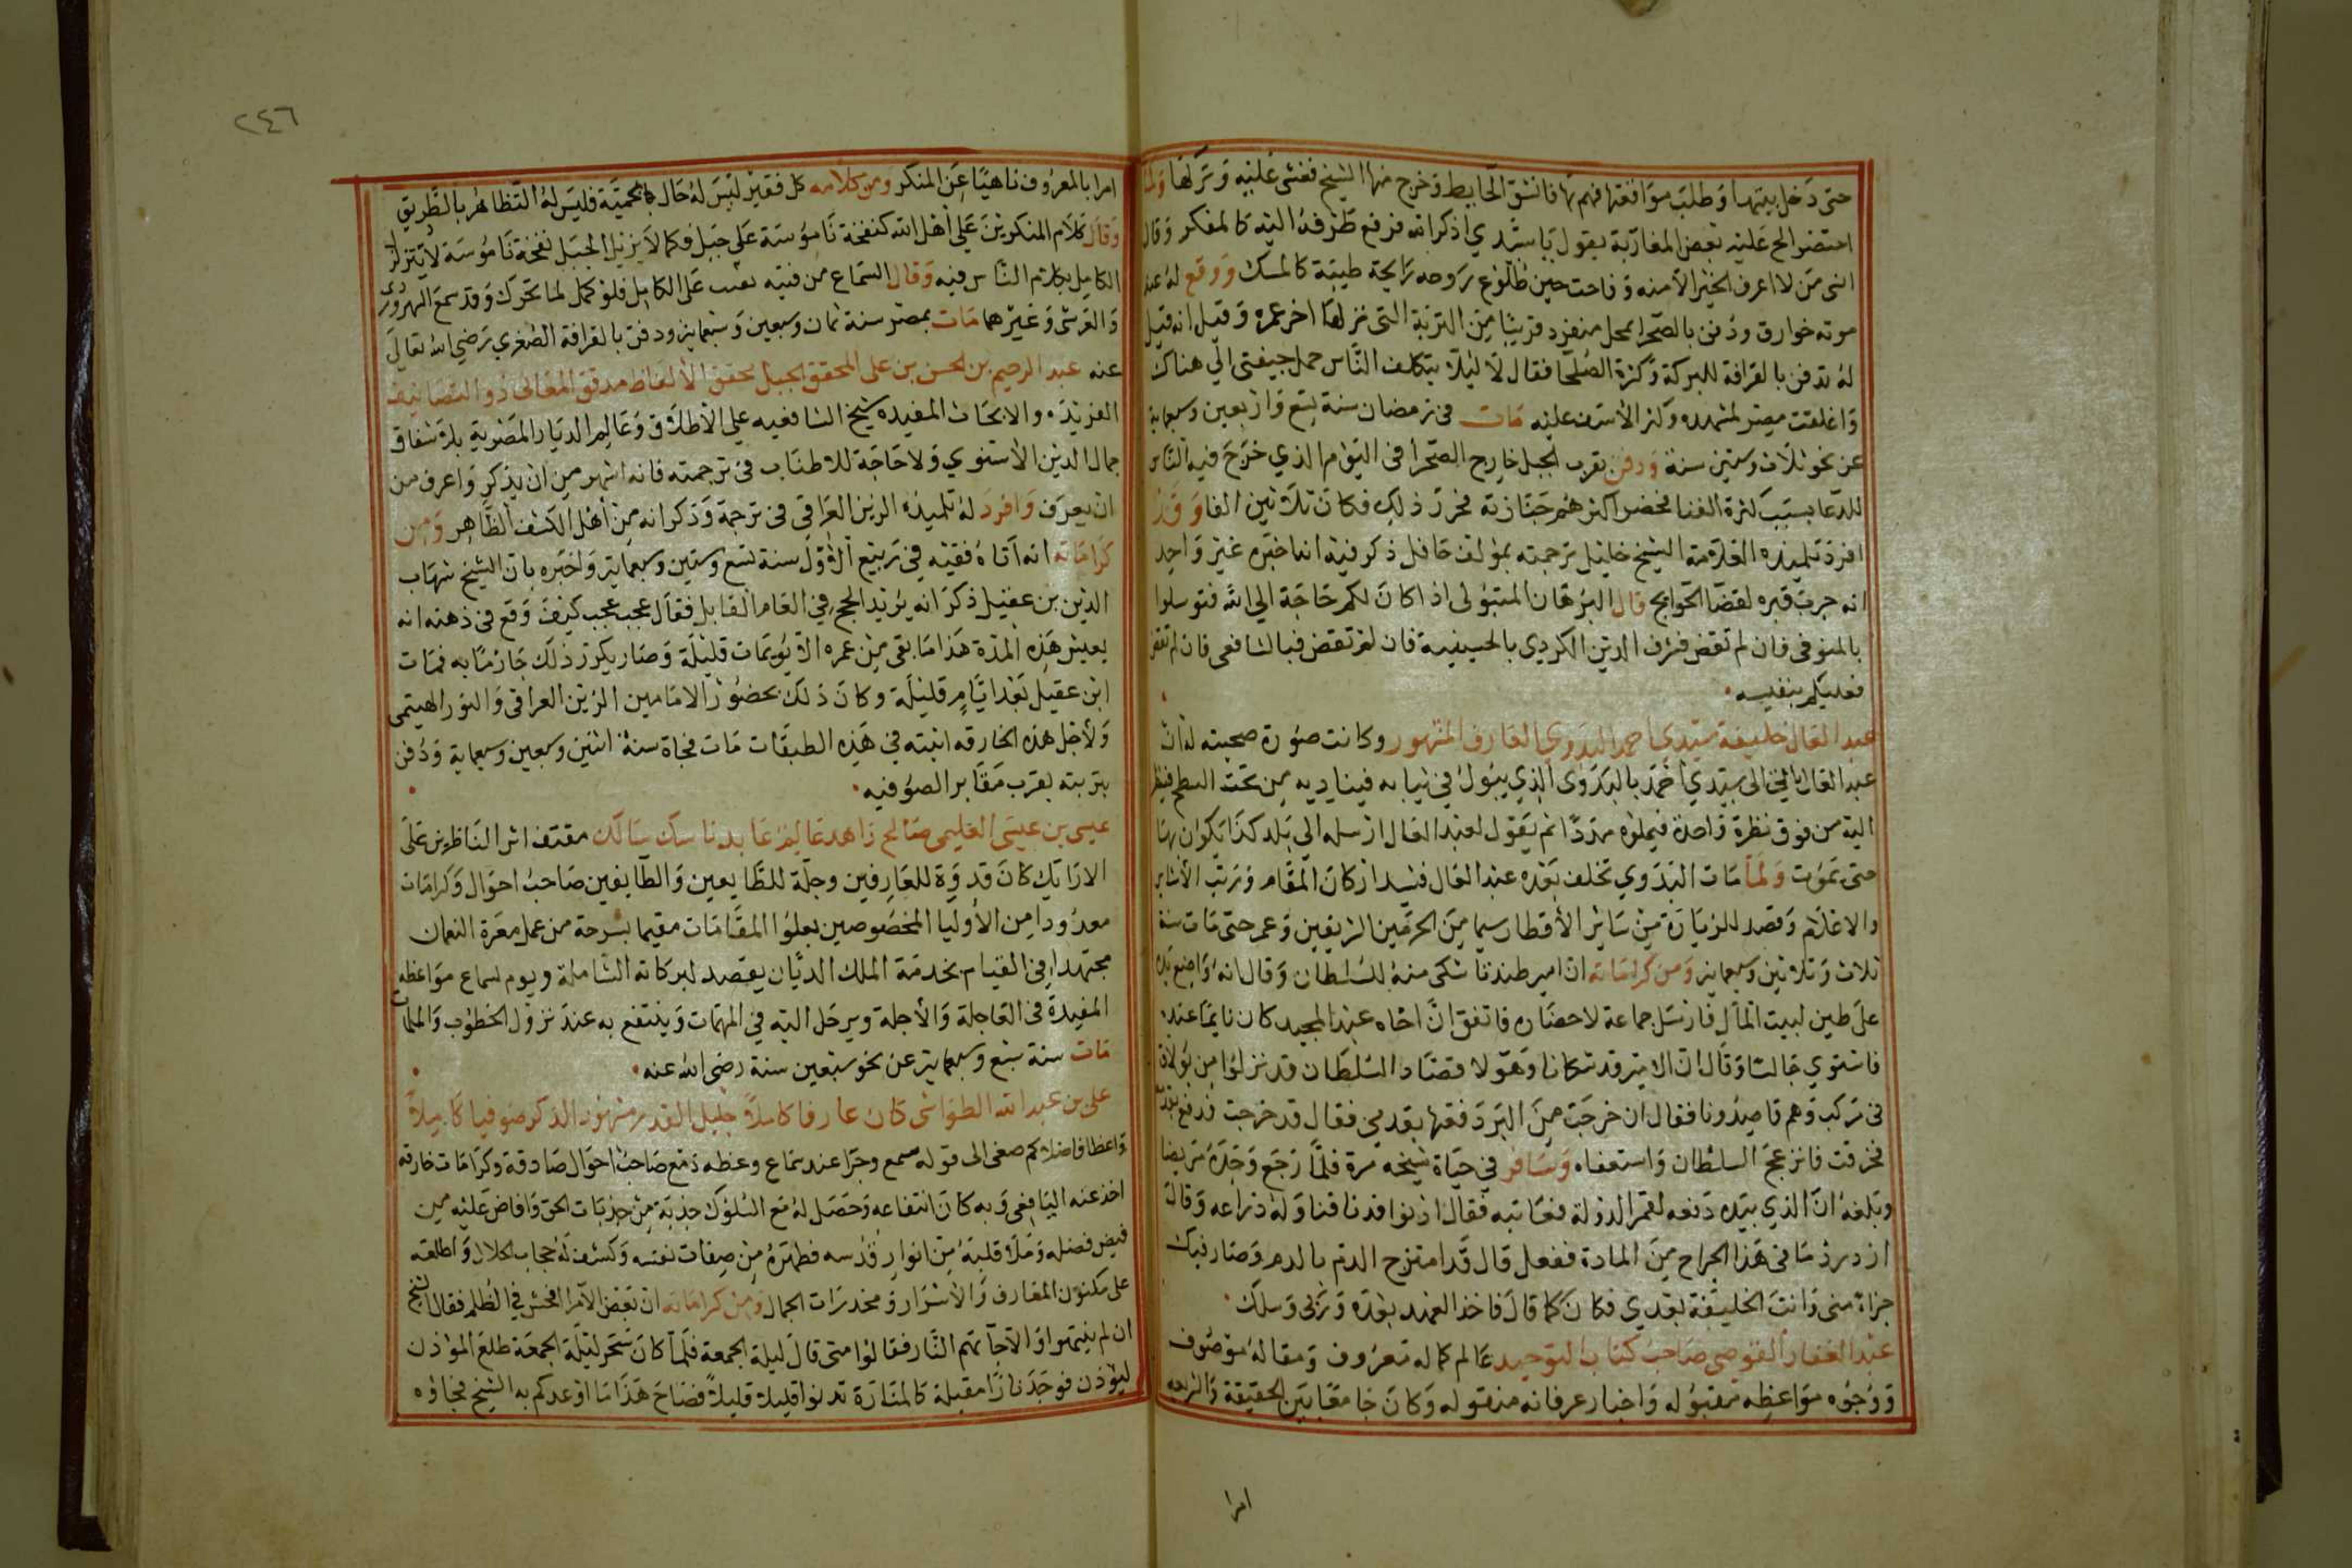 حتى دخل بيتها وطلب موافقتها فهم بها فانشق الحايط وخرج منها الشيخ فغشى عليه وتركها ولما
احتضر الح عليه بعض المغاربة يقول يا سيدي اذكر الله فرفع طرفه اليه كالمفكر وقال
انى من لا اعرف الخير الا منه وفاحت حين طلوع روحه رايحة طيبة كالمسك ووقع له عند
موته خوارق ودفن بالصحرا بمحل منفرد قريبا من التربة التى نزلها اخر عمره وقيل انه قيل
له تدفن بالقرافة للبركة وكثرة الصلحا فقال لا ليلا يتكلف الناس حمل جيفتى الي هناك
واغلقت مصر لمشهده وكثر الاسف عليه مات في رمضان سنة تسع واربعين وسبعماية
عن نحو ثلاث وستين سنة ودفن بقرب الجبل خارج الصحرا فى اليوم الذي خرج فيه الناس
للدعا بسبب كثرة الفنا فحضر اكثرهم جنازته فحرر ذلك فكان ثلاثين الفا وقد
افرد تلميذه العلامة الشيخ خليل ترجمته بمولف حافل ذكر فيه انه اخبره غير واحد
انه جرب قبره لقضا الحوايج قال البرهان المتبولى اذا كان لكم حاجة الي الله فتوسلوا
بالمنوفى فان لم تقض فبشرف الدين الكردي بالحسينية فان لم تقض فبالشافعى فان لم تقض
فعليكم بنفيسه
عبد العال خليفة سيدي احمد البدوي العارف المشهور وكانت صورة صحبته له ان
عبد العال الى سيدي احمد بالبدوى الذي يبول في ثيابه فيناديه من تحت السطح فينظر
اليه من فوق نظرة واحدة فيملوه مددا ثم يقول لعبد العال ارسله الي بلد كذا يكون بها
حتى يموت ولما مات البدوي تخلف بعده عبد العال فشيد اركان المقام ورتب الاشاير
والاعلام وقصد للزيارة من ساير الاقطار سيما من الحرمين الشريفين وعمر حتى مات سنة
ثلاث وثلاثين وسبعماية ومن كراماته ان امير طندتا شكى منه للسلطان وقال انه واضع يده
على طين لبيت المال فارسل جماعة لاحضاره فاتفق ان اخاه عبد المجيد كان نايما عنده
فاستوي جالسا وقال ان الامير قد شكانا وهولا قصاد السلطان قد نزلوا من بولاق
فى مركب وهم قاصدونا فقال ان خرجت من البر دفعتها بقدمي فقال قد خرجت فدفع بقدمه
فغرقت فانزعج السلطان واستعفاه وسافر في حياة شيخه مرة فلما رجع وجده مريضا
وبلغه ان الذي بيده دفعه لقمر الدولة فعاتبه فقال ادنوا فدنا فناوله ذراعه وقال
ازدرد ما فى هذا الجراح من المادة ففعل قال قد امتزج الدم بالدم وصار فيك
جزاء منى وانت الخليفة بعدي فكان كما قال فاخذ العهد بعده وتربى وسلك
عبد الغفار القوصى صاحب كتاب التوحيد عالم كماله معروف ومقاله موصوف
ووجوه مواعظه مقبوله واخبار عرفانه منقوله وكان جامعا بين الحقيقة والشريعه
امرا
٢٤٦
امرا بالمعروف ناهيا عن المنكر ومن كلامه كل فقير ليس له حال يحميه فليس له التظاهر بالطريق
وقال كلام المنكرين على اهل الله كنفخة ناموسة على جبل فكما لا يزيل الجبل نفخة ناموسة لا يتزلزل
الكامل بكلام الناس فيه وقال السماع من فيته تعب على الكامل فلو كمل لما تحرك وقد سمع السهروردى
والقرشى وغيرهما مات بمصر سنة ثمان وسبعين وسبعماية ودفن بالقرافة الصغري رضي الله تعالى
عنه عبد الرحيم بن الحسن بن على المحقق الجبل محقق الالفاظ مدقق المعانى ذو التصانيف
الفريده والابحاث المفيده شيخ الشافعيه على الاطلاق وعالم الديار المصرية بلا شقاق
جمال الدين الاسنوي ولا حاجة للاطناب فى ترجمته فانه اشهر من ان يذكر واعرف من
ان يعرف وافرد له تلميذه الزين العراقى فى ترجمة وذكر انه من اهل الكشف الظاهر ومن
كراماته انه اتاه فقيه في ربيع الاول سنة تسع وستين وسبعماية واخبره بان الشيخ شهاب
الدين بن عقيل ذكر انه يريد الحج في العام القابل فقال عجب عجب كيف وقع فى ذهنه انه
يعيش هذه المدة هذا ما بقى من عمره الا يويمات قليلة وصار يكرر ذلك جازما به فمات
ابن عقيل بعد ايام قليلة وكان ذلك بحضور الامامين الزين العراقى والنور الهيتمى
ولاجل هذه الخارقه اثبته في هذه الطبقات مات فجاة سنة اثنين وسبعين وسبعماية ودفن
بتربته بقرب مقابر الصوفيه
عيسى بن عيسى العليمى صالح زاهد عالم عابد ناسك سالك مقتف اثر الناظرين على
الارايك كان قدوة للعارفين وجلة للطايعين والطايفين صاحب احوال وكرامات
معدودا من الاوليا المخصوصين بعلوا المقامات مقيما بسرحة من عمل معرة النعمان
مجتهدا في القيام بخدمة الملك الديان يقصد لبركاته الشاملة ويوم لسماع مواعظه
المفيدة فى العاجلة والاجلة ويرحل اليه في المهمات وينتفع به عند نزول الخطوب والملمات
مات سنة سبع وسبعماية عن نحو سبعين سنة رضى الله عنه
على بن عبد الله الطواشى كان عارفا كاملا جليل القدر مشهور الذكر صوفيا كاملا
واعظا فاضلا كم صغى الى قوله سمع وجرا عند سماع وعظه دمع صاحب احوال صادقة وكرامات خارقه
اخذ عنه اليافعى وبه كان انتفاعه وحصل له مع السلوك جذبة من جذبات الحق وافاض عليه من
فيض فضله وملا قلبه من انوار قدسه فطهره من صفات نفسه وكشف له حجاب الجلال واطلعه
على مكنون المعارف والاسرار ومخدرات الجمال ومن كراماته ان بعض الامرا افحش في الظلم فقال الشيخ
ان لم ينتهوا والا جاتهم النار فقالوا متى قال ليلة الجمعة فلما كان سحر ليلة الجمعة طلع الموذن
ليوذن فوجد نارا مقبلة كالمنارة تدنوا قليلا قليلا فصاح هذا ما اوعدكم به الشيخ فجاؤه